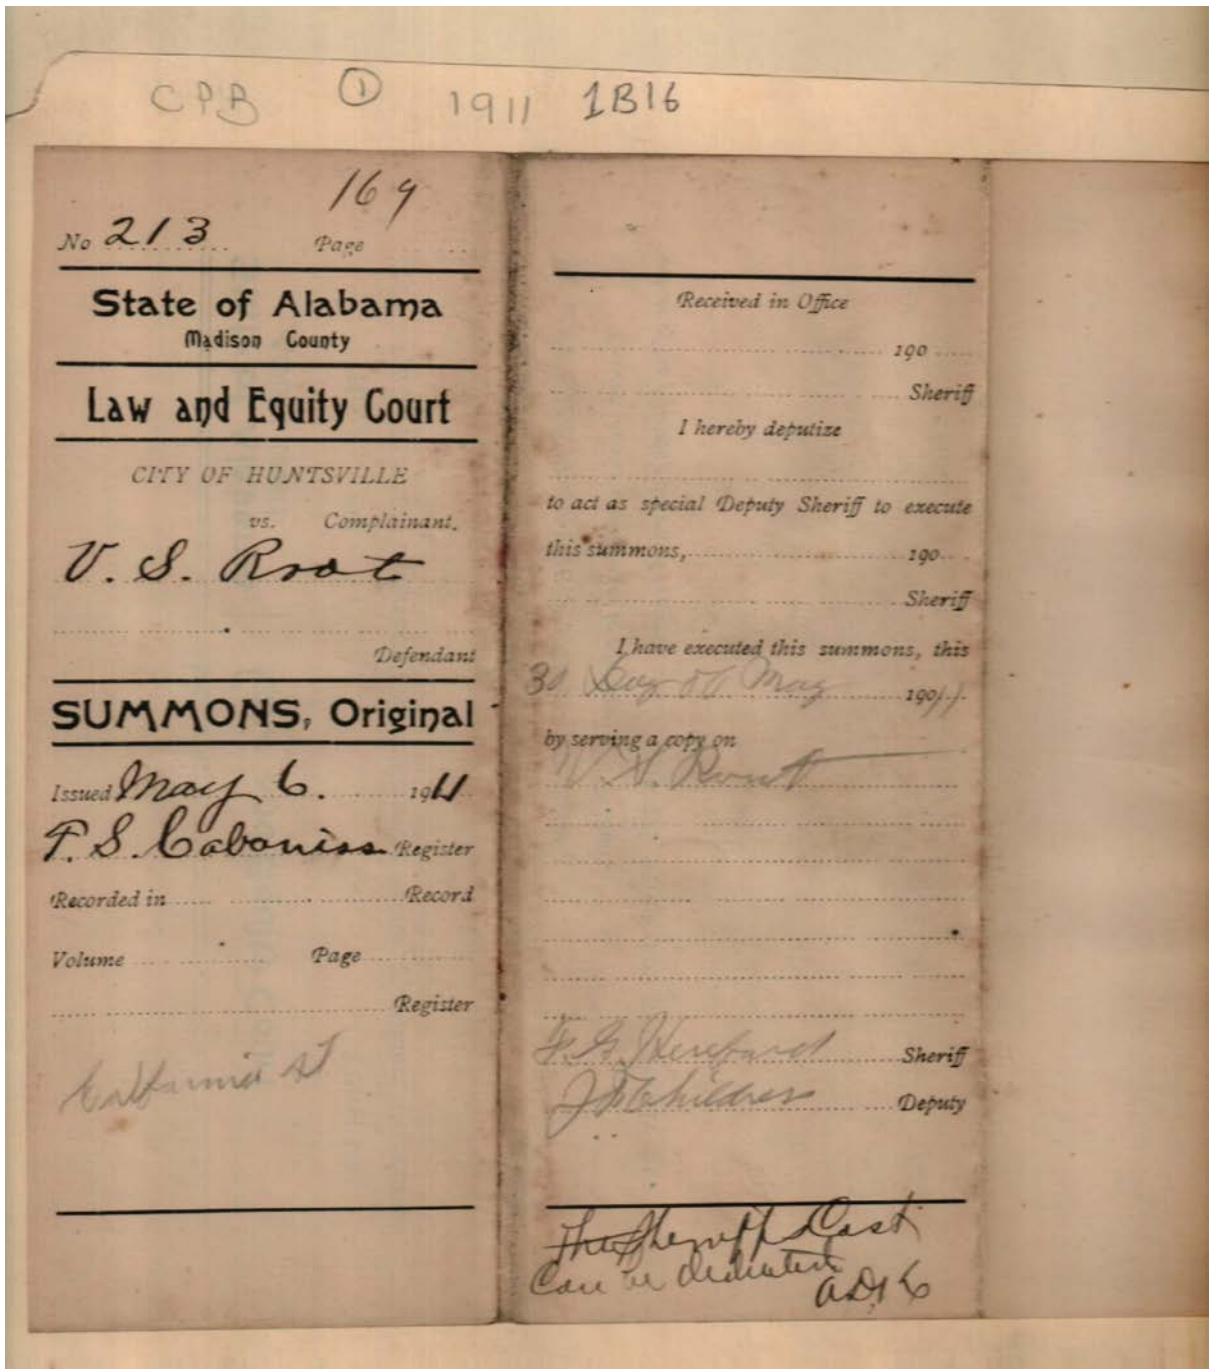 CPB ① 1911 1B16
169
No 213 Page
State of Alabama
Madison County
Law and Equity Court
CITY OF HUNTSVILLE
vs. Complainant.
V. S. Root
Defendant
SUMMONS, Original
Issued May 6. 1911
F. S. Cabaniss Register
Recorded in Record
Volume Page
Register
California St
Received in Office
190
Sheriff
I hereby deputize
to act as special Deputy Sheriff to execute
this summons, 190
Sheriff
I have executed this summons, this
30 Day of May 1911.
by serving a copy on
V. S. Root
Sheriff
J Childress Deputy
The Sheriff Cost
Can be